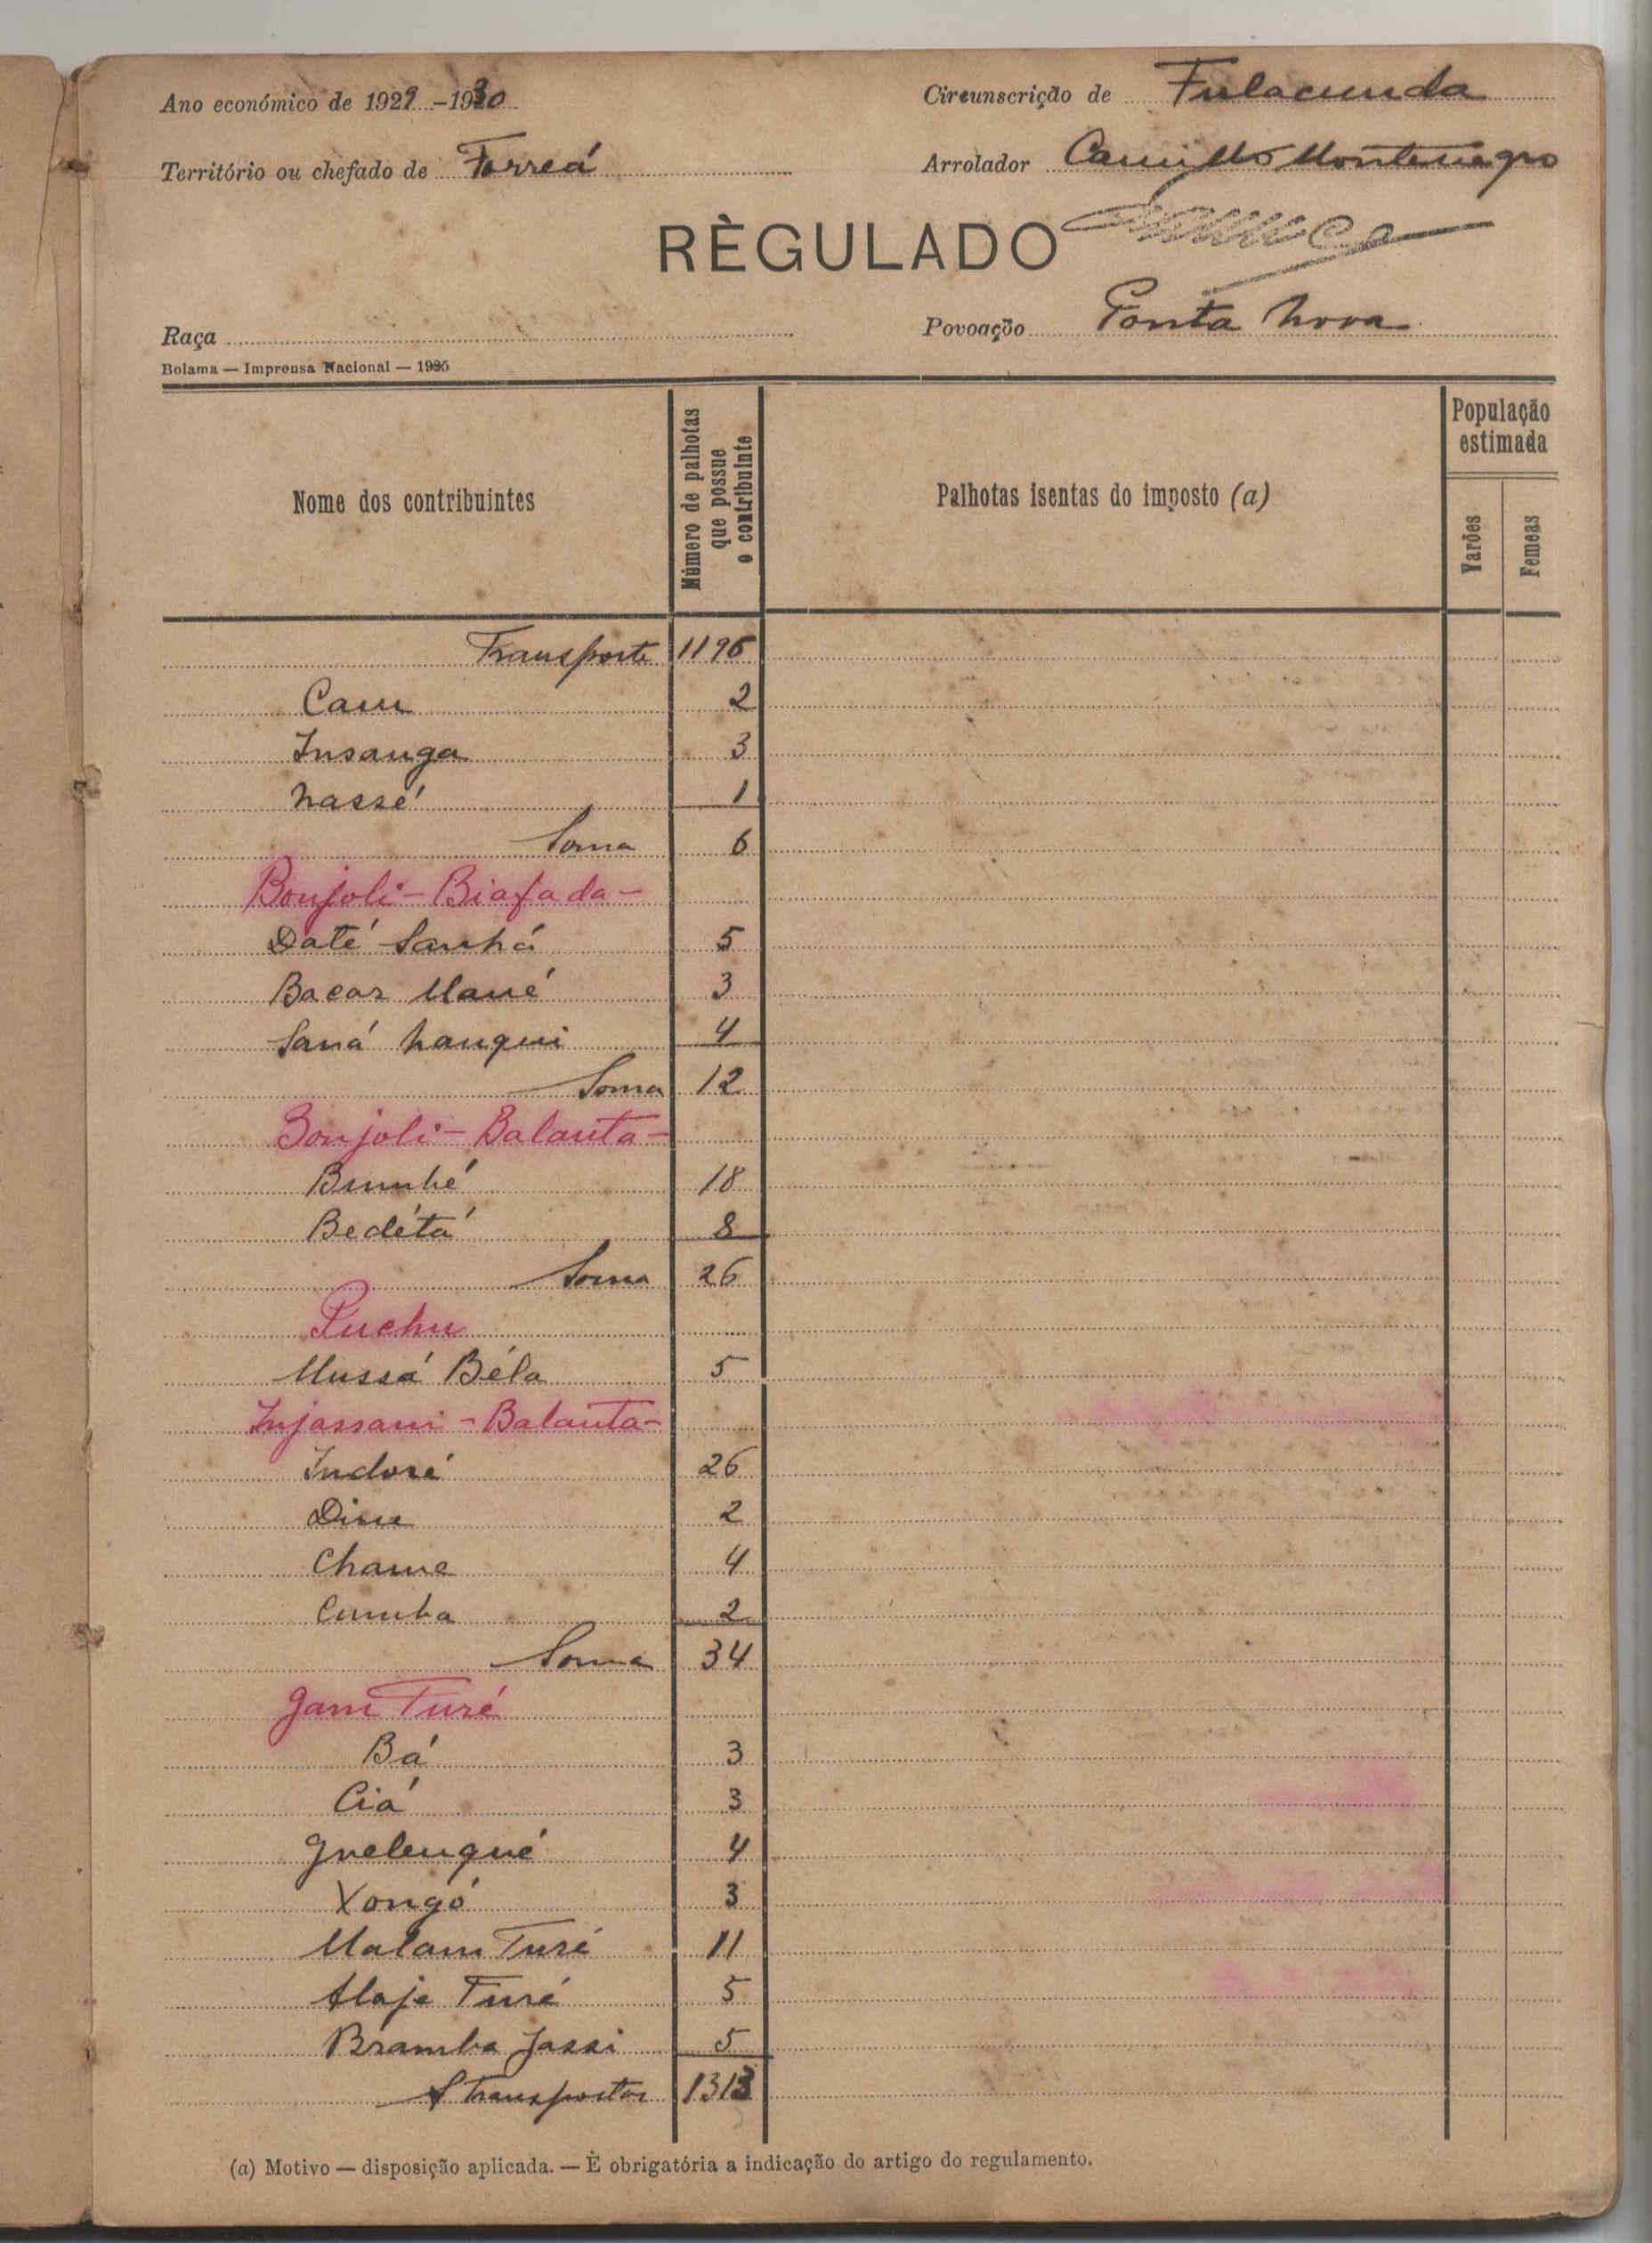 Ano económico de 1929-1930
Circunscrição de Fulacunda
Território ou chefado de Forreá
Arrolador Camillo Montenegro
RÈGULADO
Raça
Povoação Ponta Nova
Bolama — Imprensa Nacional — 1925
Nome dos contribuintes
Número de palhotas
que possue
o contribuinte
Palhotas isentas do imposto (a)
População
estimada
Varões
Femeas
Transporte 1196
Cam 2
Insanga 3
Nassé 1
Soma 6
Bonjoli - Biafada -
Daté Sanhá 5
Bacar Mané 3
Saná Nanqui 4
Soma 12
Bonjoli - Balanta -
Bumhé 18
Bedétá 8
Soma 26
Puchu
Mussá Béla 5
Injassani - Balanta -
Indoré 26
Dine 2
Chama 4
Cumba 2
Soma 34
Gam Turé
Bá 3
Ciá 3
Guelenqué 4
Xongó 3
Malam Turé 11
Alaje Turé 5
Bramba Jassi 5
A transportar 1313
(a) Motivo — disposição aplicada. — È obrigatória a indicação do artigo do regulamento.